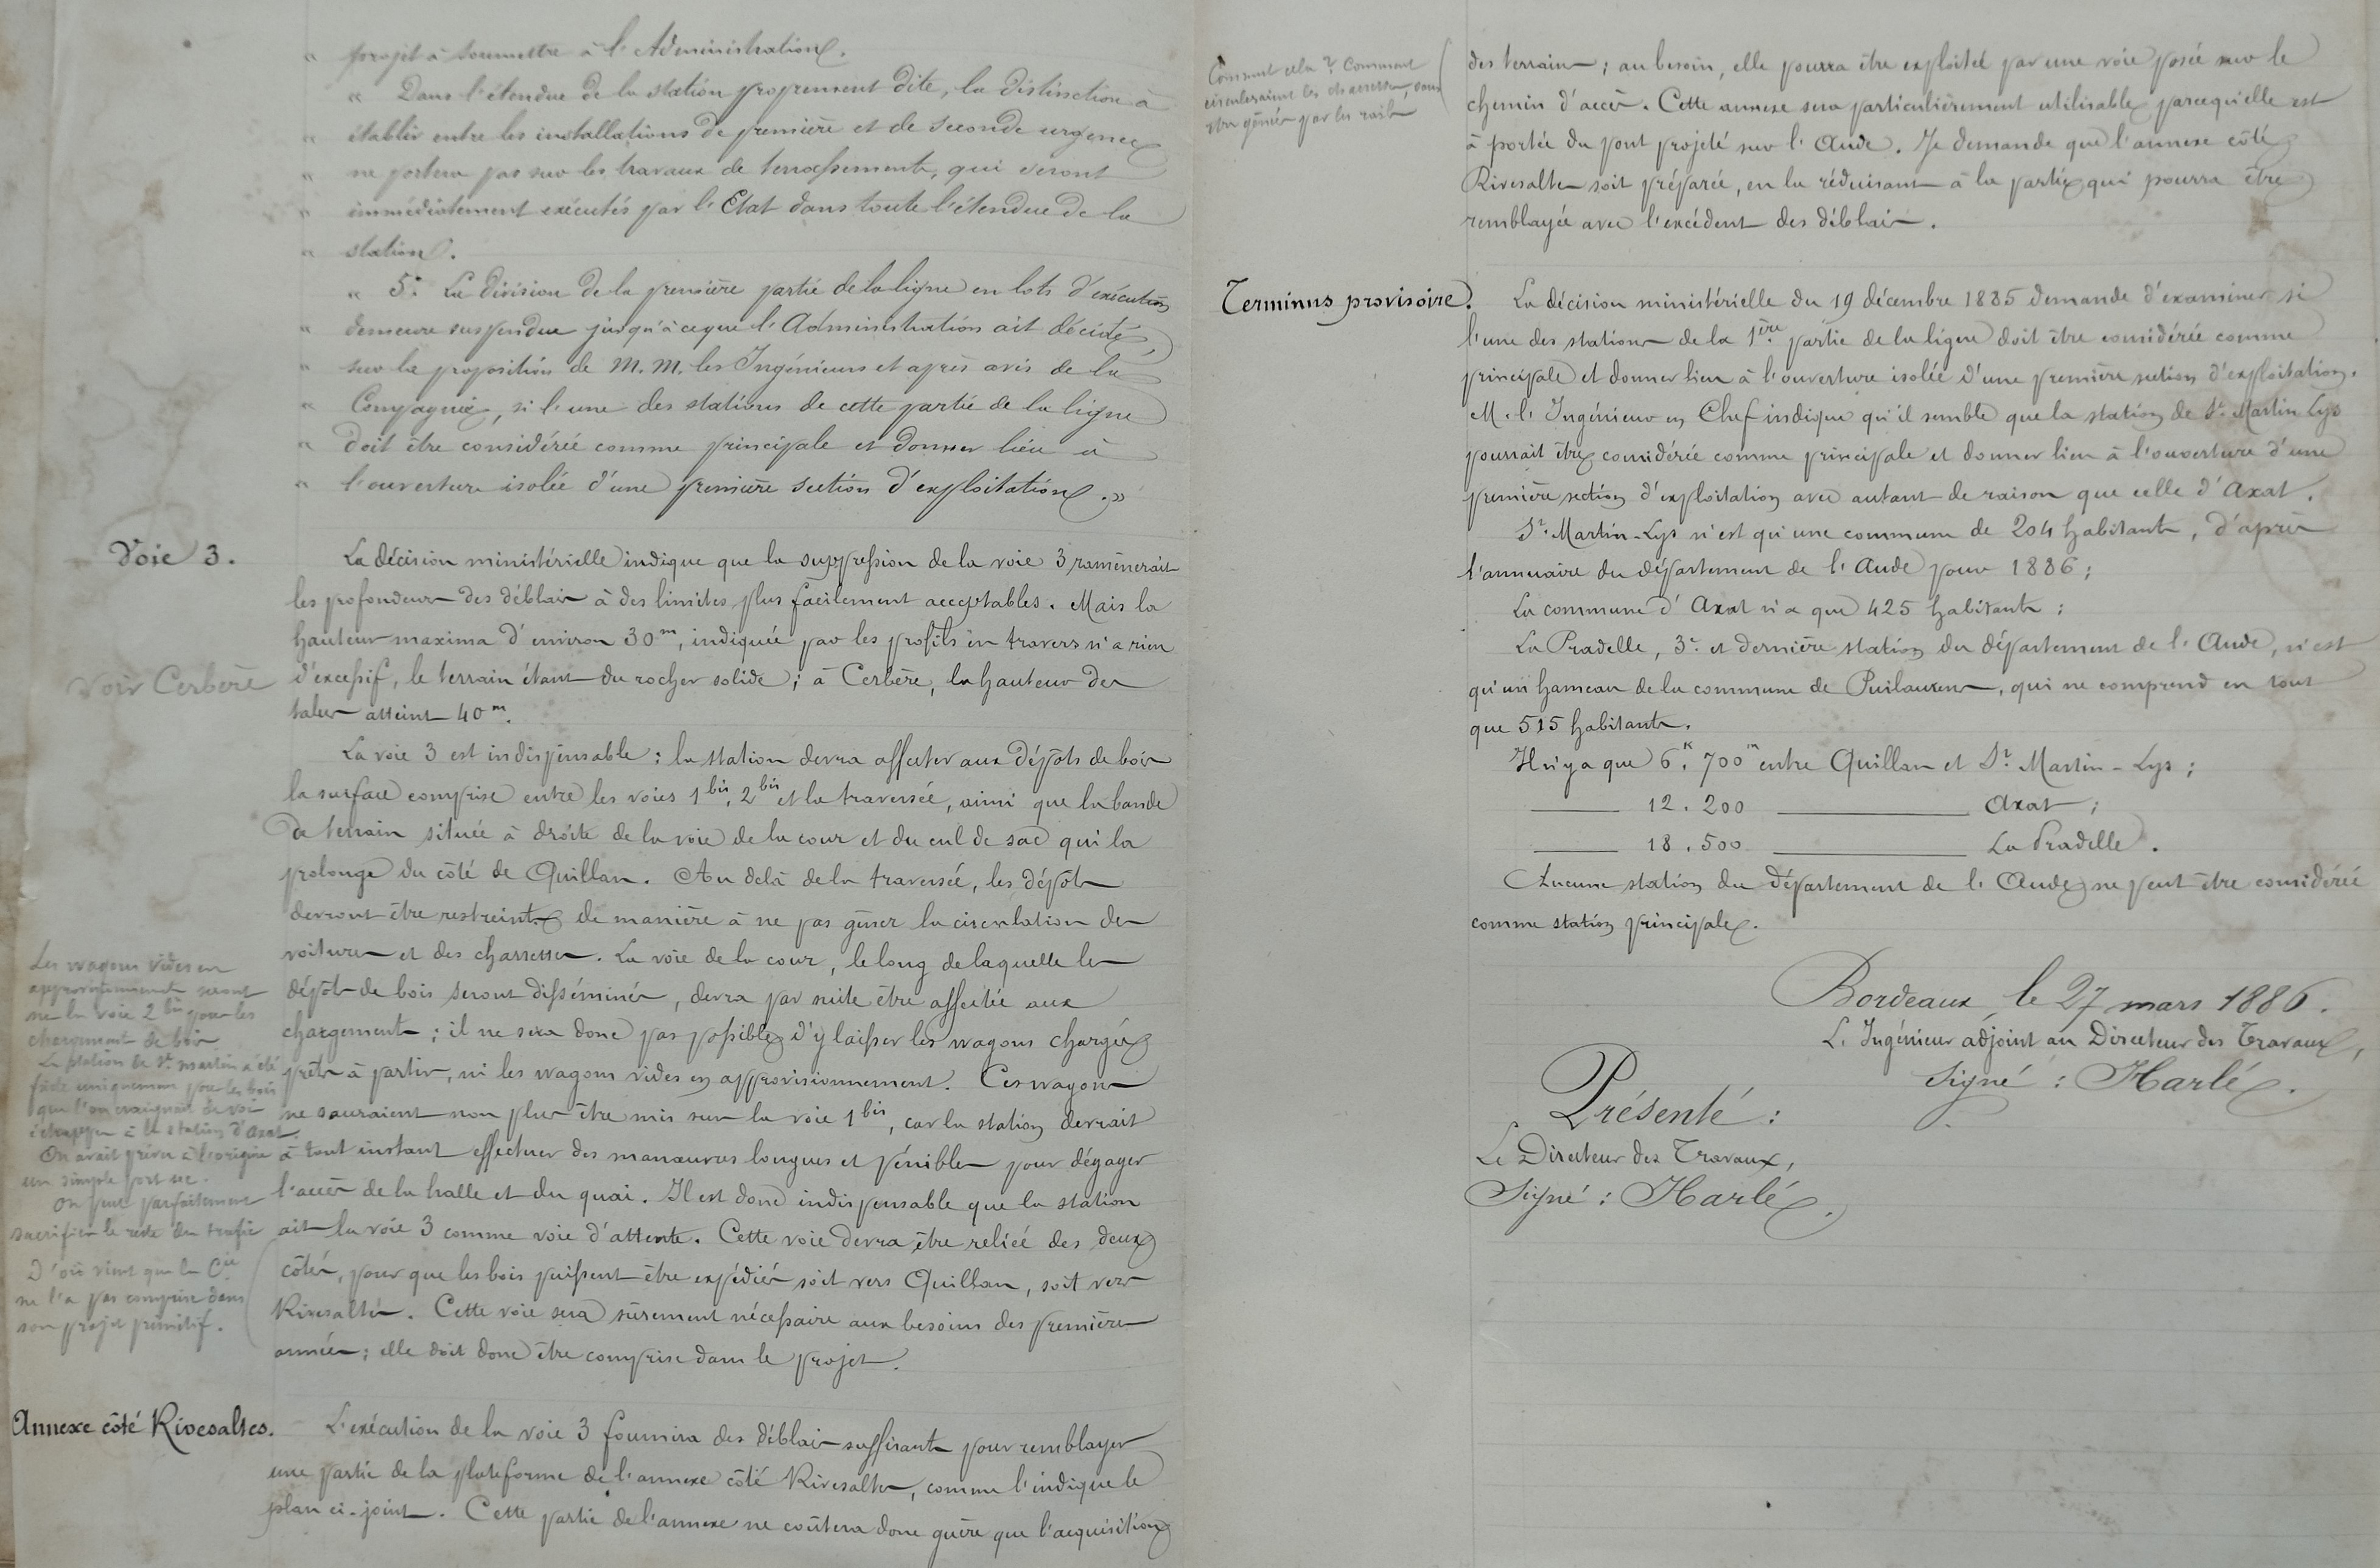 " projet à soumettre à l'Administration.
" " Dans l'étendue de la station proprement dite, la distinction à
" établir entre les installations de première et de seconde urgence
" ne portera pas sur les travaux de terrassements, qui seront
" immédiatement exécutés par l'Etat dans toute l'étendue de la
" station.
" 5.° La division de la première partie de la ligne en lots d'exécution
" demeure suspendue jusqu'à ce que l'Administration ait décidé,
" sur la proposition de M.M. les Ingénieurs et après avis de la
" Compagnie, si l'une des stations de cette partie de la ligne
" doit être considérée comme principale et donner lieu à
" l'ouverture isolée d'une première section d'exploitation. »
Voie 3.
La décision ministérielle indique que la suppression de la voie 3 ramènerait
les profondeurs des déblais à des limites plus facilement acceptables. Mais la
hauteur maxima d'environ 30m, indiquée par les profils en travers n'a rien
d'excessif, le terrain étant du rocher solide ; à Cerbère, la hauteur des
talus atteint 40m.
Voir Cerbère
La voie 3 est indispensable : la station devra affecter aux dépôts de bois
la surface comprise entre les voies 1bis, 2bis et la traversée, ainsi que la bande
de terrain située à droite de la voie de la cour et du cul de sac qui la
prolonge du côté de Quillan. Au delà de la traversée, les dépôts
devront être restreints de manière à ne pas gêner la circulation des
voitures et des charrettes. La voie de la cour, le long de laquelle les
dépôts de bois seront disséminés, devra par suite être affectée aux
chargements ; il ne sera donc pas possible d'y laisser les wagons chargés
prêts à partir, ni les wagons vides en approvisionnement. Ces wagons
ne sauraient non plus être mis sur la voie 1bis, car la station devrait
à tout instant effectuer des manœuvres longues et pénibles pour dégager
l'accès de la halle et du quai. Il est donc indispensable que la station
ait la voie 3 comme voie d'attente. Cette voie devra être reliée des deux
côtés, pour que les bois puissent être expédiés soit vers Quillan, soit vers
Rivesaltes. Cette voie sera sûrement nécessaire aux besoins des premières
années ; elle doit donc être comprise dans le projet.
Les wagons vides en
approvisionnement seront
sur la voie 2bis pour les
chargements de bois
La station de St Martin a été
faite uniquement pour les bois
que l'on craignait de voir
échapper à la station d'Axat.
On avait prévu à l'origine
un simple port sec.
On peut parfaitement
sacrifier le reste du trafic
D'où vient que la Cie
ne l'a pas comprise dans
son projet primitif.
Annexe côté Rivesaltes.
L'exécution de la voie 3 fournira des déblais suffisants pour remblayer
une partie de la plateforme de l'annexe côté Rivesaltes, comme l'indique le
plan ci-joint. Cette partie de l'annexe ne coûtera donc guère que l'acquisition
Comment cela ? Comment
circuleraient les charrettes, sans
être gênées par les rails
des terrains ; au besoin, elle pourra être exploitée par une voie posée sur le
chemin d'accès. Cette annexe sera particulièrement utilisable parcequ'elle est
à portée du pont projeté sur l'Aude. Je demande que l'annexe côté
Rivesaltes soit préparée, en la réduisant à la partie qui pourra être
remblayée avec l'excédent des déblais.
Terminus provisoire.
La décision ministérielle du 19 décembre 1885 demande d'examiner si
l'une des stations de la 1ère partie de la ligne doit être considérée comme
principale et donner lieu à l'ouverture isolée d'une première section d'exploitation.
M. l'Ingénieur en Chef indique qu'il semble que la station de St Martin Lys
pourrait être considérée comme principale et donner lieu à l'ouverture d'une
première section d'exploitation avec autant de raison que celle d'Axat.
St Martin-Lys n'est qu'une commune de 204 habitants, d'après
l'annuaire du département de l'Aude pour 1886 ;
La commune d'Axat n'a que 425 habitants ;
La Pradelle, 3e et dernière station du département de l'Aude, n'est
qu'un hameau de la commune de Puilaurens, qui ne comprend en tout
que 515 habitants.
Il n'y a que 6k.700m entre Quillan et St Martin-Lys ;
——— 12.200 ——————— Axat ;
——— 18.500 ——————— La Pradelle.
Aucune station du département de l'Aude ne peut être considérée
comme station principale.
Bordeaux, le 27 mars 1886.
L'Ingénieur adjoint au Directeur des Travaux,
Signé : Harlé.
Présenté :
Le Directeur des Travaux,
Signé : Harlé.